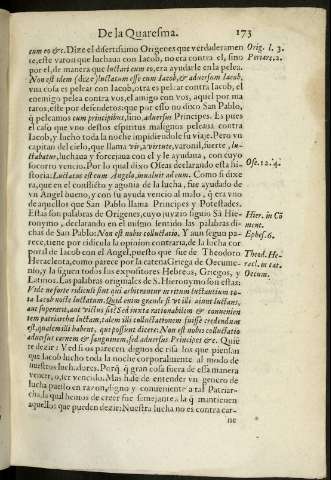 De la Quaresma. 173
cum eo &c. Dize el disertissimo Origenes que verdaderamen
te, este varon que luchaua con Iacob, no era contra el, sino
por el, de manera que luctari cum eo, era ayudarle en la pelea.
Non est idem (dize) luctatum esse cum Iacob, & aduersum Iacob,
vna cosa es pelear con Iacob, otra es pelear contra Iacob, el
enemigo pelea contra vos, el amigo con vos, aquel por ma
taros, este por defenderos: que por esso no dixo San Pablo,
q̃ peleamos cum principibus, sino aduersus Principes. Es pues
el caso que vno destos espiritus malignos peleaua contra
Iacob, y lucho toda la noche impidiendole su viaje. Pero vn
capitan del cielo, que llama vir, a virtute, varonil, fuerte, lu-
ctabatur, luchaua y forcejaua con el y le ayudaua, con cuyo
socorro vencio. Por lo qual dixo Oseas declarando esta his-
storia: Luctatus est cum Angelo, inualuit ad eum. Como si dixe
ra, que en el conflicto y agonia de la lucha, fue ayudado de
vn Angel bueno, y con su ayuda vencio al malo, q̃ era vno
de aquellos que San Pablo llama Principes y Potestades.
Estas son palabras de Origenes, cuyo juyzio siguio Sã Hie-
ronymo, declarando en el mismo sentido las palabras di-
chas de San Pablo: Non est nobis colluctatio. Y aun segun pa-
rece, tiene por ridicula la opinion contraria, de la lucha cor
poral de Iacob con el Angel, puesto que fue de Theodoro
Heracleota, como parece por la catena Griega de Oecume-
nio, y la siguen todos los expositores Hebreos, Griegos, y
Latinos. Las palabras originales de S. Hieronymo son estas:
Vide ne forte ridendi sint qui arbitrentur
ta Iacob nocte luctatum. Quid enim grande si vt illi aiunt luctans,
aut superarit, aut victus sit: Sed iuxta rationabilem & conuenien
tem patriarchæ luctam, talem illi colluctationem fuisse credendum
est, qualem illi habent, qui possunt dicere: Non est nobis colluctatio
aduersus carnem & sanguinem, sed aduersus Principes &c. Quie
te dezir: Ved si os parecen dignos de risa los que piensan
que Iacob lucho toda la noche corporalmente al modo de
nuestros luchadores. Porq̃, q̃ gran cosa fuera de essa manera
vencer, o ser vencido. Mas hase de entender vn genero de
lucha puesto en razon, digno y conueniente a tal Patriar-
cha, la qual hemos de creer fue semejante a la q̃ mantienen
aquellos que pueden dezir: Nuestra lucha no es contra car-
ne
Orig. l. 3.
Periarc. 2.
Ose. 12. 4.
Hier. in Cõ
ment.
Ephes. 6.
Theod. He-
racl. in cat.
Oecum.